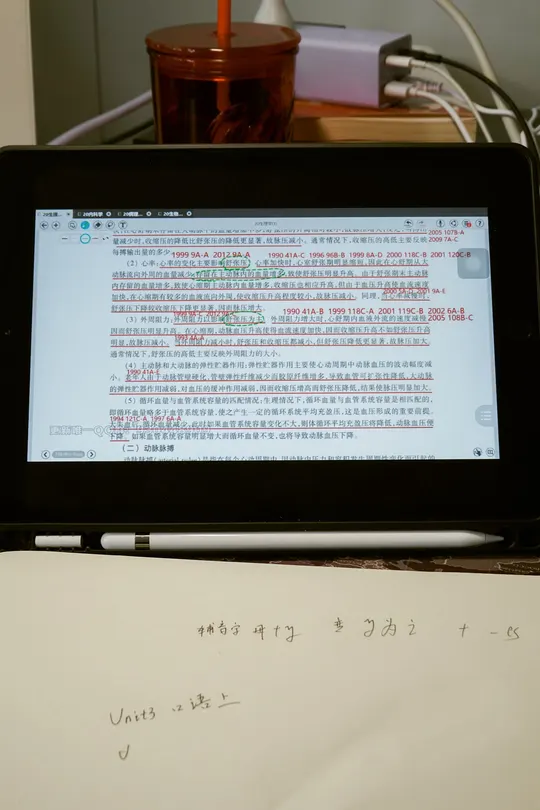 20生理...
20内科学
20病理...
20生理...
量减少时,收缩压的降低比舒张压的降低更显著,故脉压减小。通常情况下,收缩压的高低主要反映 2009 7A-C
每搏输出量的多少。
1999 9A-A 2012 9A-A 1990 41A-C 1996 96B-B 1999 8A-D 2000 118C-B 2001 120C-B
(2)心率:心率的变化主要影响舒张压。心率加快时,心室舒张期明显缩短,因此在心舒期从大
动脉流向外周的血量减少,存留在主动脉内的血量增多,致使舒张压明显升高。由于舒张期末主动脉
内存留的血量增多,致使收缩期主动脉内血量增多,收缩压也相应升高,但由于血压升高使血流速度
加快,在心缩期有较多的血液流向外周,使收缩压升高程度较小,故脉压减小。同理,当心率减慢时,
舒张压下降较收缩压下降更显著,因而脉压增大。
1990 41A-B 1999 118C-A 2001 119C-B 2002 6A-B
(3)外周阻力:外周阻力以影响舒张压为主。外周阻力增大时,心舒期内血液外流的速度减慢 2005 108B-C
因而舒张压明显升高。在心缩期,动脉血压升高使得血流速度加快,因而收缩压升高不如舒张压升高
明显,故脉压减小。当外周阻力减小时,舒张压和收缩压都减小,但舒张压降低更显著,故脉压加大。
通常情况下,舒张压的高低主要反映外周阻力的大小。
(4)主动脉和大动脉的弹性贮器作用:弹性贮器作用主要使心动周期中动脉血压的波动幅度减
1990 41A-E
小。老年人由于动脉管壁硬化,管壁弹性纤维减少而胶原纤维增多,导致血管可扩张性降低,大动脉
的弹性贮器作用减弱,对血压的缓冲作用减弱,因而收缩压增高而舒张压降低,结果使脉压明显加大。
(5)循环血量与血管系统容量的匹配情况:生理情况下,循环血量与血管系统容量是相匹配的,
即循环血量略多于血管系统容量,使之产生一定的循环系统平均充盈压,这是血压形成的重要前提。
1994 121C-A 1997 6A-A
大失血后,循环血量减少,此时如果血管系统容量变化不大,则体循环平均充盈压将降低,动脉血压便
下降。如果血管系统容量明显增大而循环血量不变,也将导致动脉血压下降。
(二)动脉脉搏
辅音字母+y 变y为i + -es
Unit3 口语上